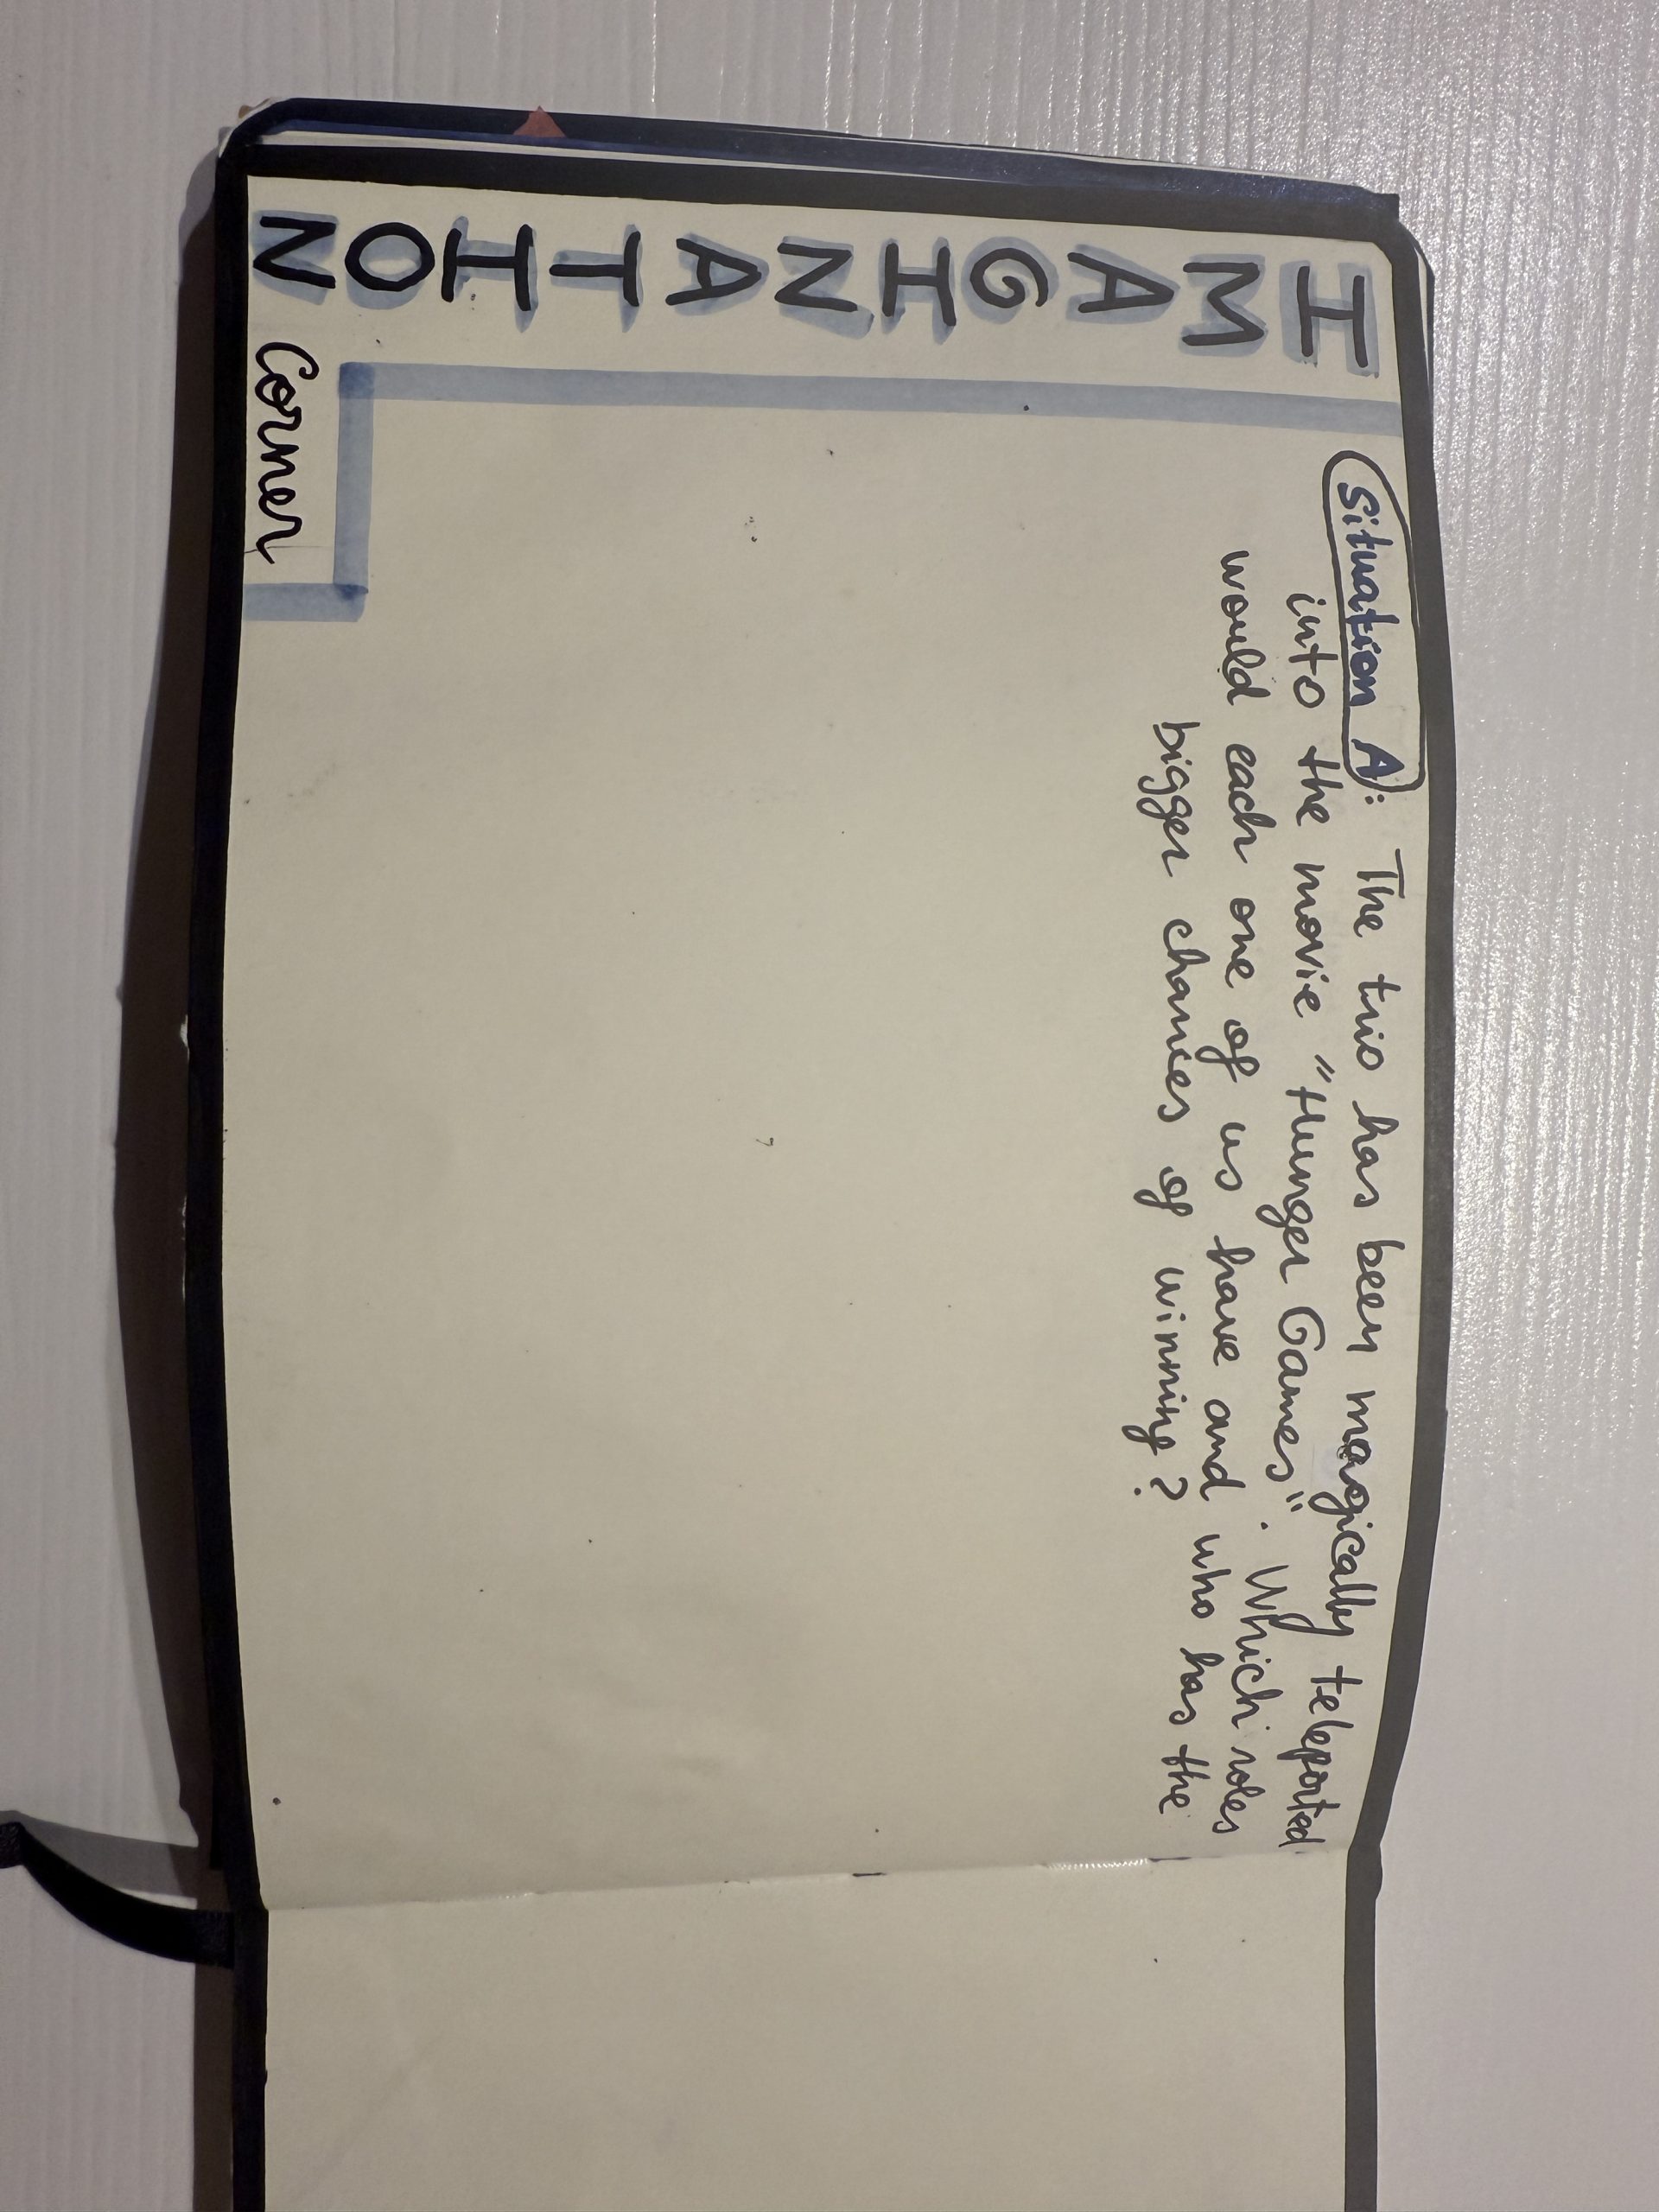 IMAGINATION
Corner
Situation A: The trio has been magically teleported
into the movie "Hunger Games". Which roles
would each one of us have and who has the
bigger chances of winning?